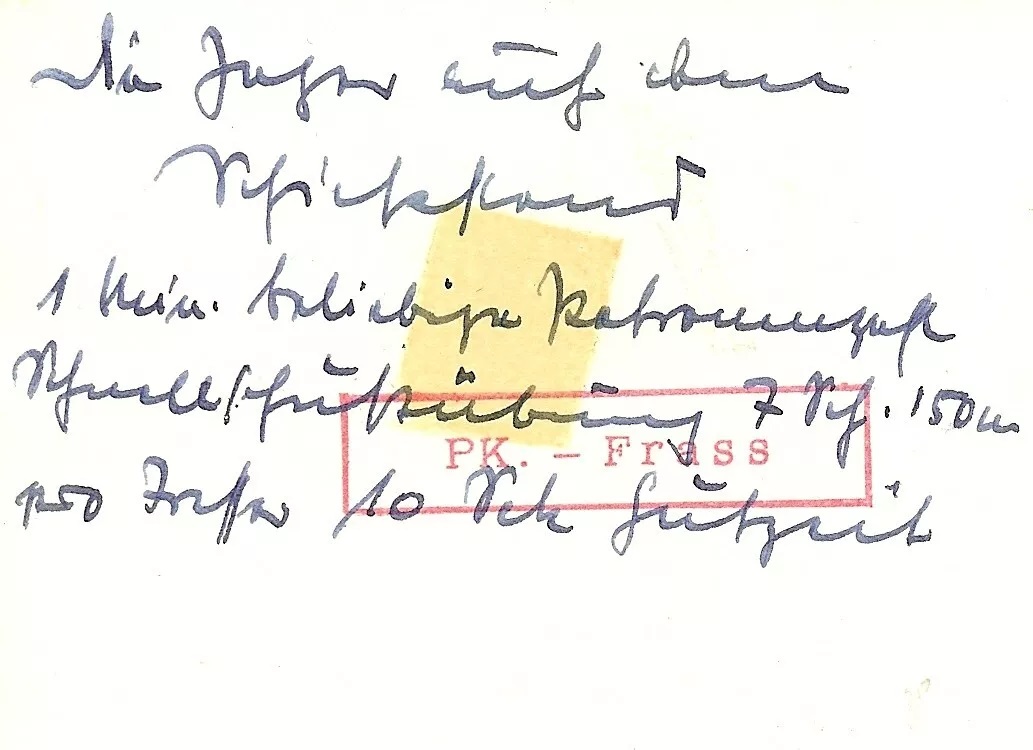 Die Jäger auf dem
Schießstand
1 Min. beliebige Patronenzahl
Schnellschußübung 7 Sch. 150m
PK. - Frass
pro Treffer 10 Sek Gutzeit